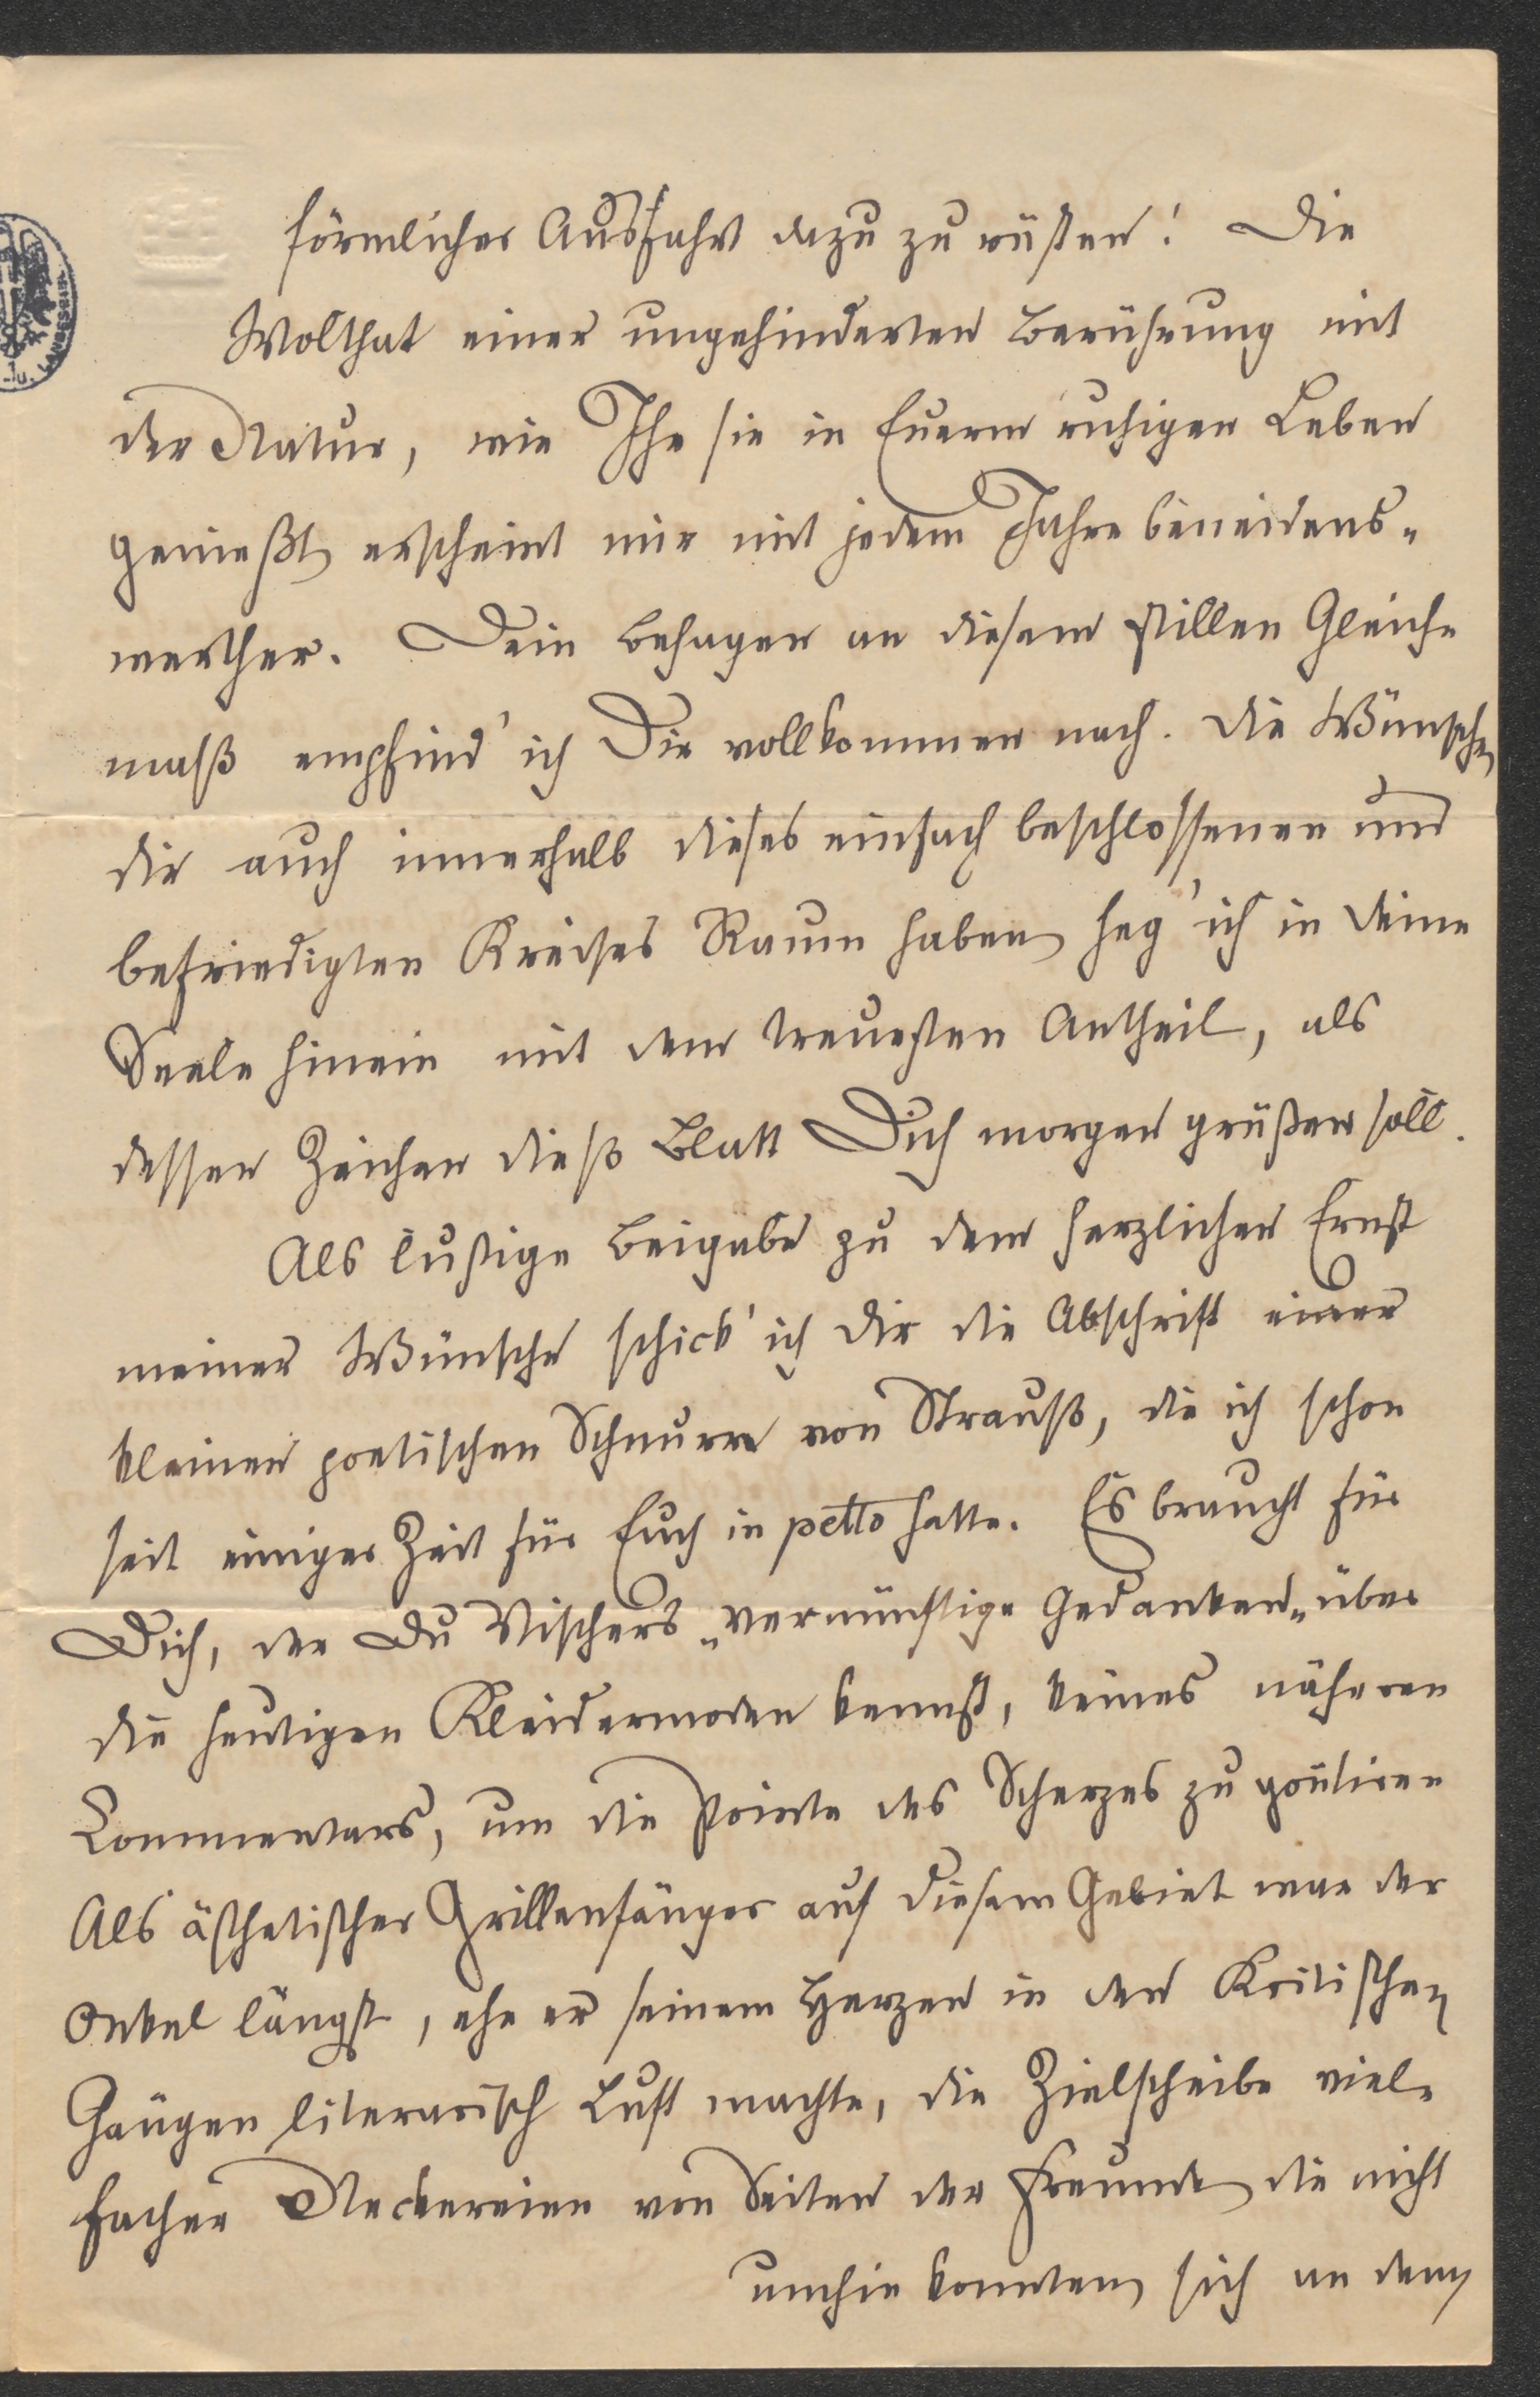 förmlicher Ausfahrt dazu zu rüsten! Die
Wolthat einer ungehinderten Berührung mit
der Natur, wie Ihr sie in Euerm ruhigen Leben
genießt, erscheint mir mit jedem Jahre beneidens-
werther. Dein Behagen an diesem stillen Gleich-
maß empfind' ich Dir vollkommen nach. Die Wünsche,
die auch innerhalb dieses einfach beschlossenen und
befriedigten Kreises Raum haben, heg' ich in Deine
Seele hinein mit dem treuesten Antheil, als
dessen Zeichen dieß Blatt Dich morgen grüßen soll.
Als lustige Beigabe zu dem herzlichen Ernst
meiner Wünsche schick' ich Dir die Abschrift einer
kleinen poetischen Schnurre von Strauß, die ich schon
seit einiger Zeit für Euch in petto hatte. Es braucht für
Dich, der Du Vischers „vernünftige Gedanken" über
die heutigen Kleidermoden kennst, keines näheren
Commentars, um die Pointe des Scherzes zu goutiren
Als ästhetischer Grillenfänger auf diesem Gebiet war der
Onkel längst, ehe er seinem Herzen in den Kritischen
Gängen literarisch Luft machte, die Zielscheibe viel-
facher Neckereien von Seiten der Freunde, die nicht
umhin konnten, sich an dem
-u. LANDESBIB